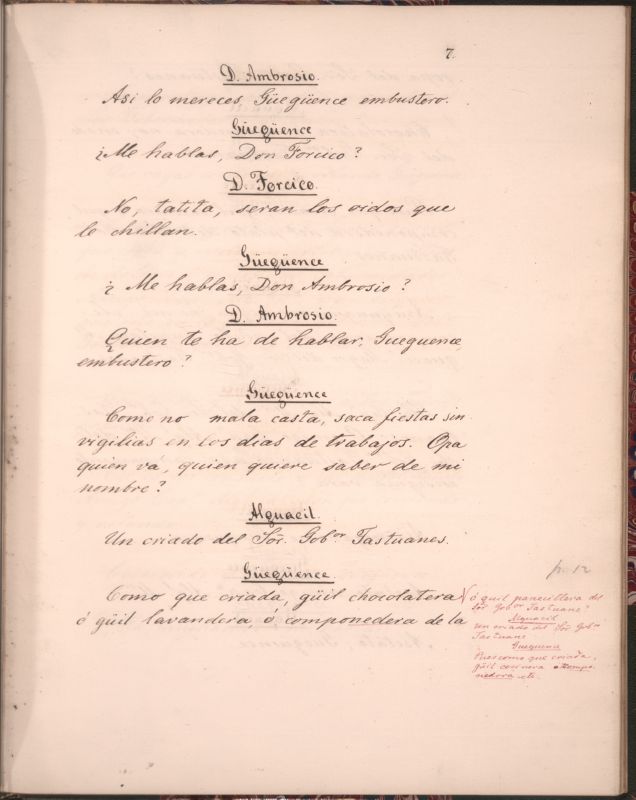 7.
D. Ambrosio.
Asi lo mereces, Güegüence embustero.
Güegüence
¿Me hablas, Don Forcico?
D. Forcico.
No, tatita, seran los oidos que
le chillan.
Güegüence
¿Me hablas, Don Ambrosio?
D. Ambrosio.
¿Quien te ha de hablar, Gueguence,
embustero?
Güegüence
Como no mala casta, saca fiestas sin
vigilias en los dias de trabajos. Opa
quien vá, quien quiere saber de mi
nombre?
Alguacil.
Un criado del Sôr. Gobor Tastuanes.
Güegüence.
Como que criada, güil chocolatera
ó güil lavandera, ó componedera de la
p. 12
ó guil panecillera del
Sôr Gobor Tastuane?
Alguacil
un criado del Sôr Gobor
Tastuane
Guegence
Pues como que criada,
güil cocinera o compo-
nedora etc.